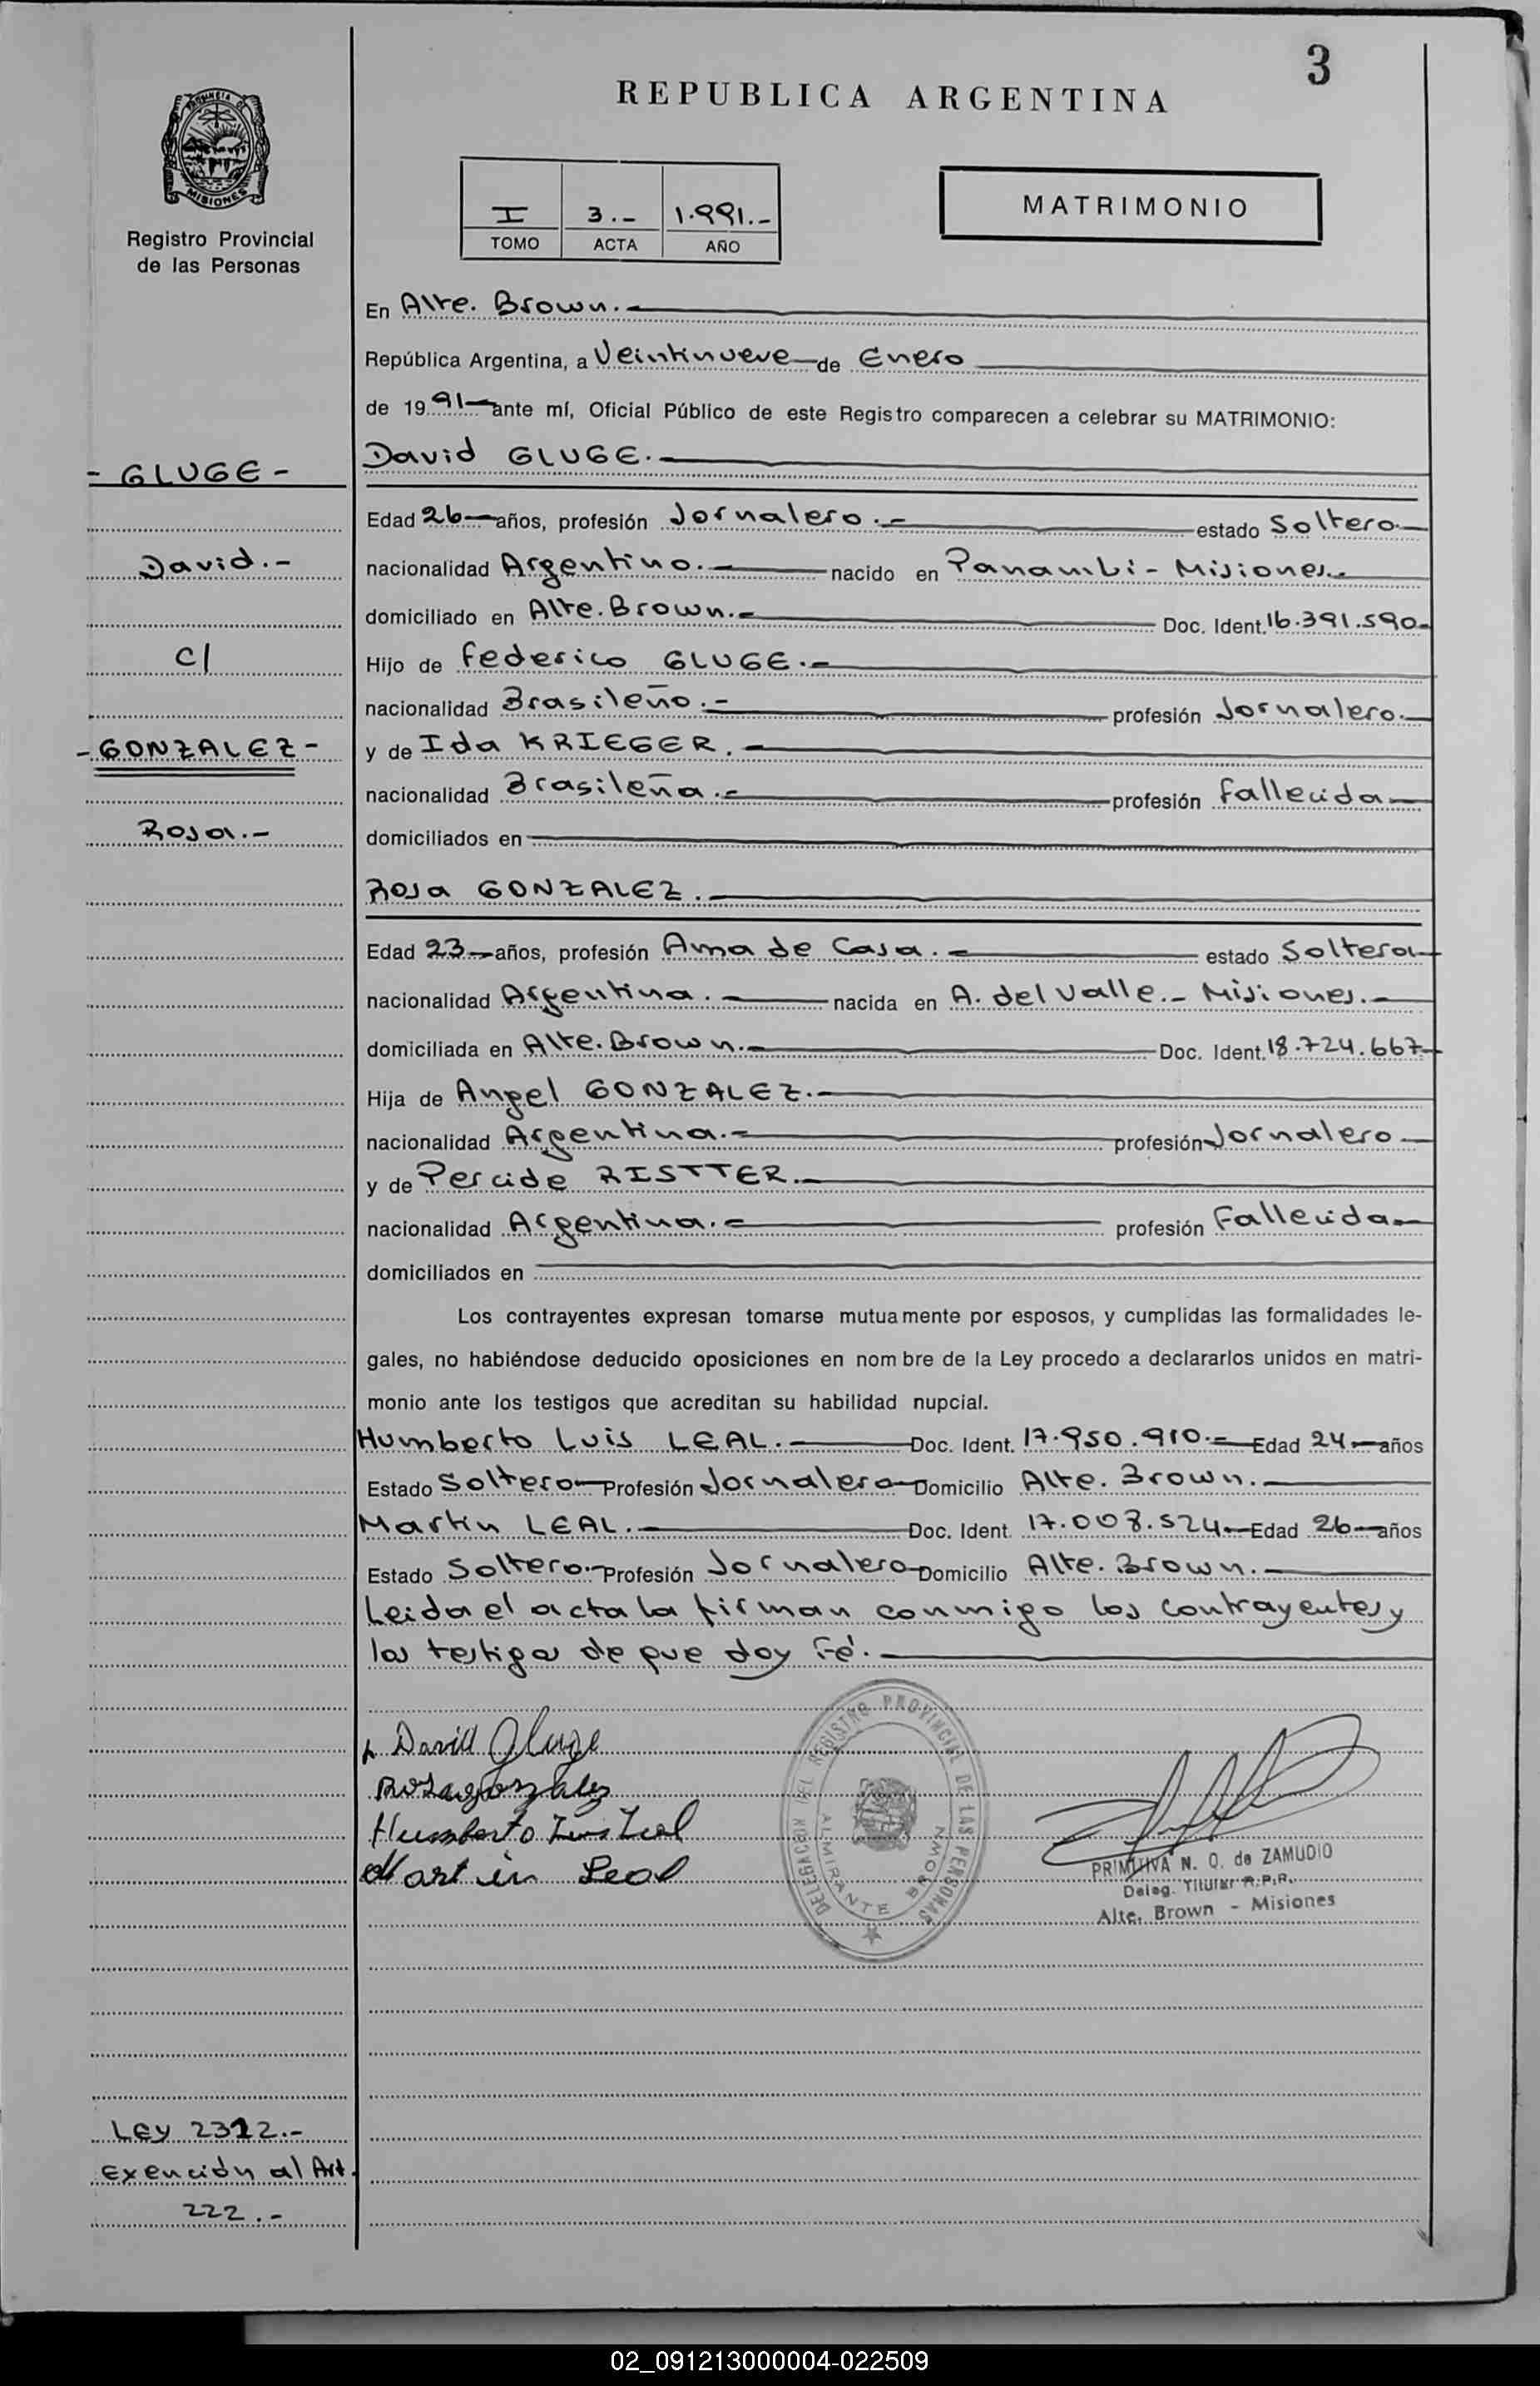 3
REPUBLICA ARGENTINA
PROVINCIA DE
MISIONES
Registro Provincial
de las Personas
I 3.- 1.991.-
TOMO ACTA AÑO
MATRIMONIO
En Alte. Brown.
República Argentina, a Veintinueve de Enero
de 1991 ante mí, Oficial Público de este Registro comparecen a celebrar su MATRIMONIO:
- GLUGE -
David GLUGE.
Edad 26 años, profesión Jornalero.- estado Soltero
David.-
nacionalidad Argentino.- nacido en Panambi - Misiones.
domiciliado en Alte. Brown.- Doc. Ident. 16.391.590-
C/
Hijo de Federico GLUGE.-
nacionalidad Brasileño.- profesión Jornalero.
- GONZALEZ -
y de Ida KRIEGER.-
nacionalidad Brasileña.- profesión fallecida
Rosa.-
domiciliados en
Rosa GONZALEZ.
Edad 23 años, profesión Ama de Casa.- estado Soltera
nacionalidad Argentina.- nacida en A. del Valle.- Misiones.-
domiciliada en Alte. Brown.- Doc. Ident. 18.724.667
Hija de Angel GONZALEZ.-
nacionalidad Argentina.- profesión Jornalero
y de Percide RISTTER.-
nacionalidad Argentina.- profesión Fallecida
domiciliados en
Los contrayentes expresan tomarse mutuamente por esposos, y cumplidas las formalidades le-
gales, no habiéndose deducido oposiciones en nombre de la Ley procedo a declararlos unidos en matri-
monio ante los testigos que acreditan su habilidad nupcial.
Humberto Luis LEAL.- Doc. Ident. 17.950.910.- Edad 24 años
Estado Soltero Profesión Jornalero Domicilio Alte. Brown.
Martin LEAL.- Doc. Ident. 17.008.524 Edad 26 años
Estado Soltero Profesión Jornalero Domicilio Alte. Brown.
Leida el acta la firman conmigo los contrayentes y
los testigos de que doy Fé.
David Gluge
Rosa gonzales
Humberto Luis Leal
Martin Leal
DELEGACION DEL REGISTRO PROVINCIAL DE LAS PERSONAS
ALMIRANTE BROWN
PRIMITIVA N. O. de ZAMUDIO
Deleg. Titular R.P.P.
Alte. Brown - Misiones
Ley 2312.-
Exención al Art.
222.-
02_091213000004-022509